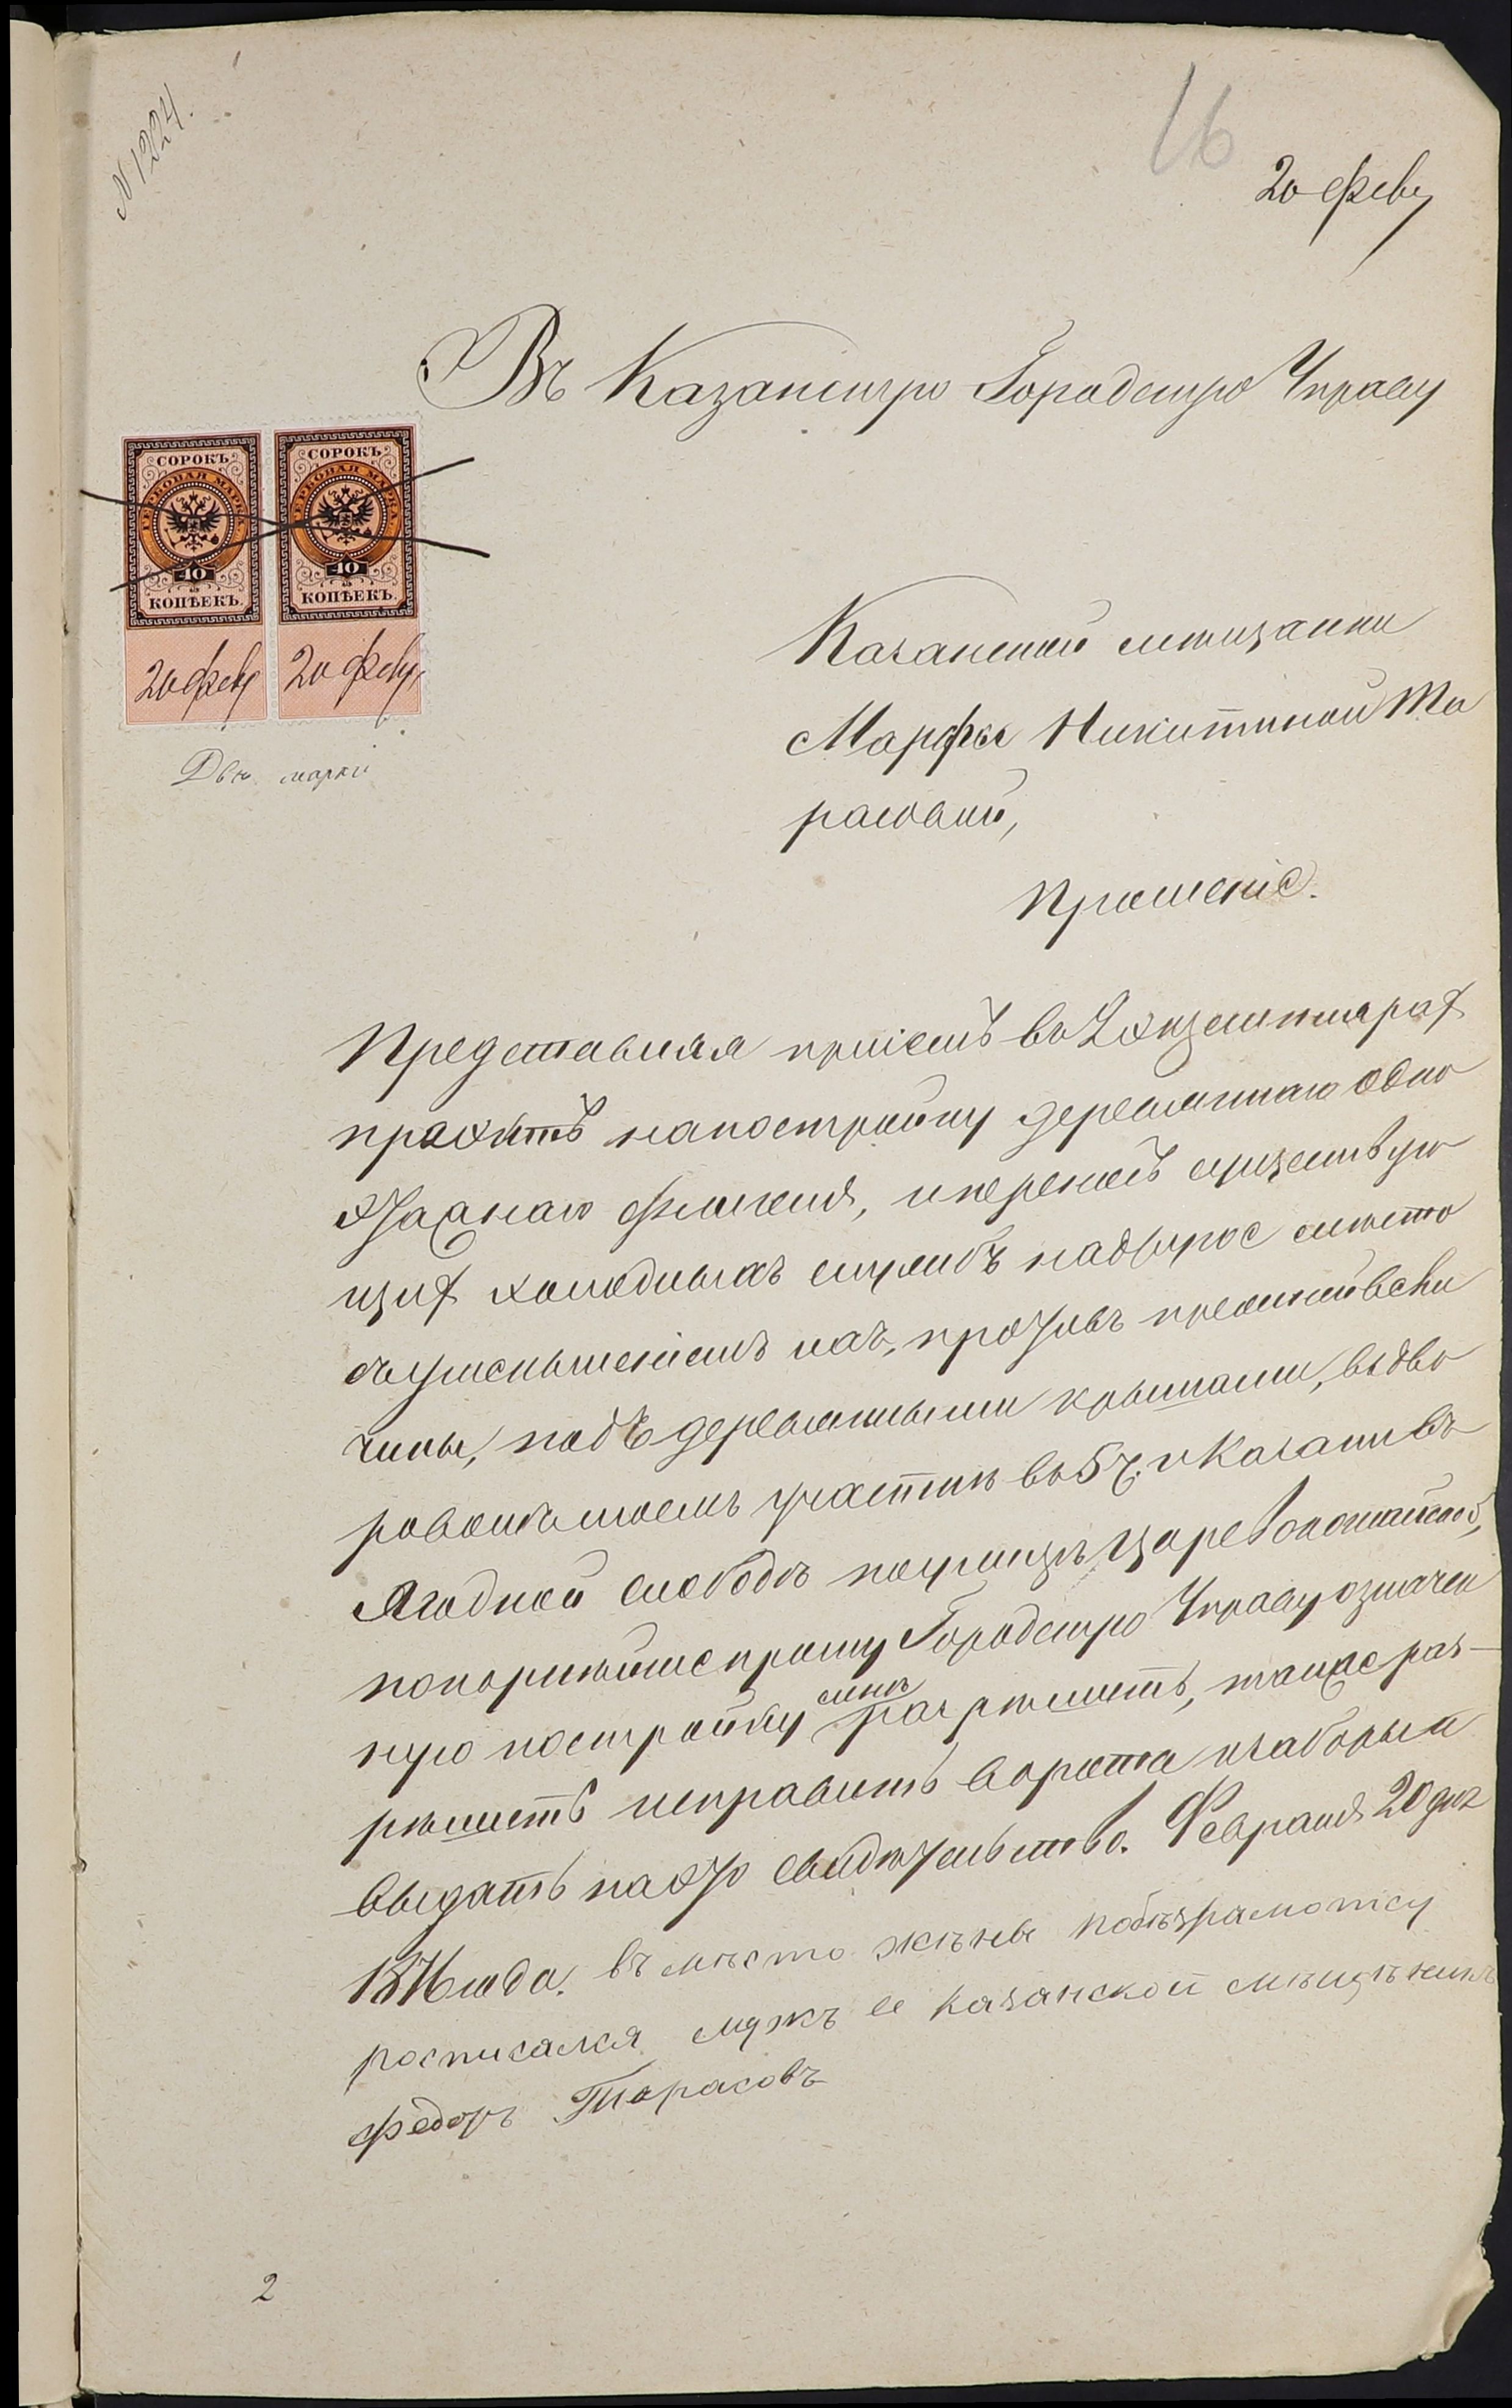 N 1224.
16
20 февр
Въ Казанскую Городскую Управу
СОРОКЪ
ГЕРБОВАЯ МАРКА
40
КОПѢЕКЪ.
20 февр
СОРОКЪ
ГЕРБОВАЯ МАРКА
40
КОПѢЕКЪ.
20 февр
Двѣ марки
Казанской мѣщанки
Марфы Никитиной Та
расовой,
Прошеніе.
Представляя присемъ въ 2 хъ экземплярах
проэктъ на постройку деревяннаго одно
этажнаго флигеля, и переносъ существую
щих холодныхъ службъ на другое мѣсто
съ уменьшеніемъ ихъ, противъ прежней вели
чины, подъ деревянными крышами, въ дво
ровомъ моемъ участкѣ въ 5 ч. г. Казани въ
Ягодной слободѣ по улицѣ Царевококшайской,
покорнѣйше прошу Городскую Управу означен
ную постройку мнѣ разрѣшить, также раз-
рѣшить исправить ворота и заборы и
выдать на это свидѣтельство. Февраля 20 дня
1876 года. въ мѣсто жѣны побѣзграмотсу
росписался мужъ ее казанской мѣщѣнинъ
Федоръ Тарасовъ
2